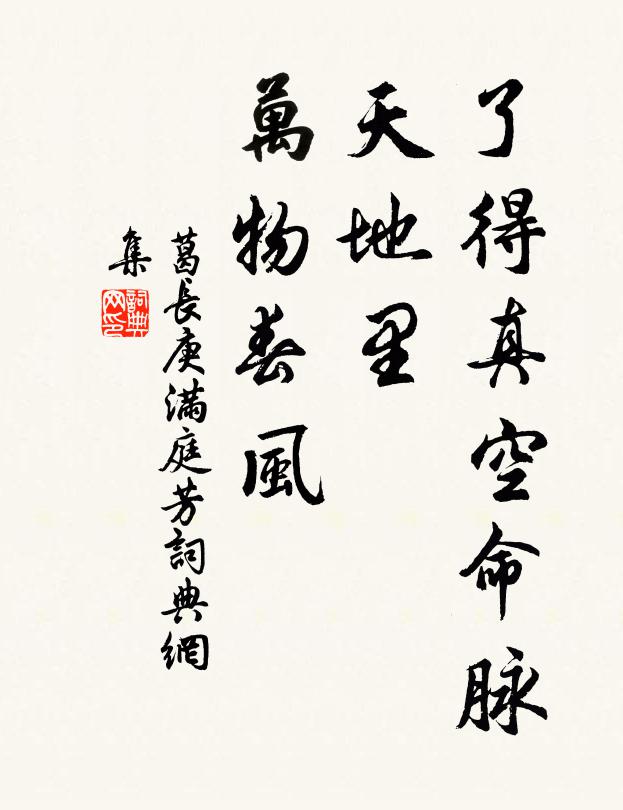 了得真空命脉
天地里
萬物春風
葛長庚滿庭芳詞典網
集
詞典
网印